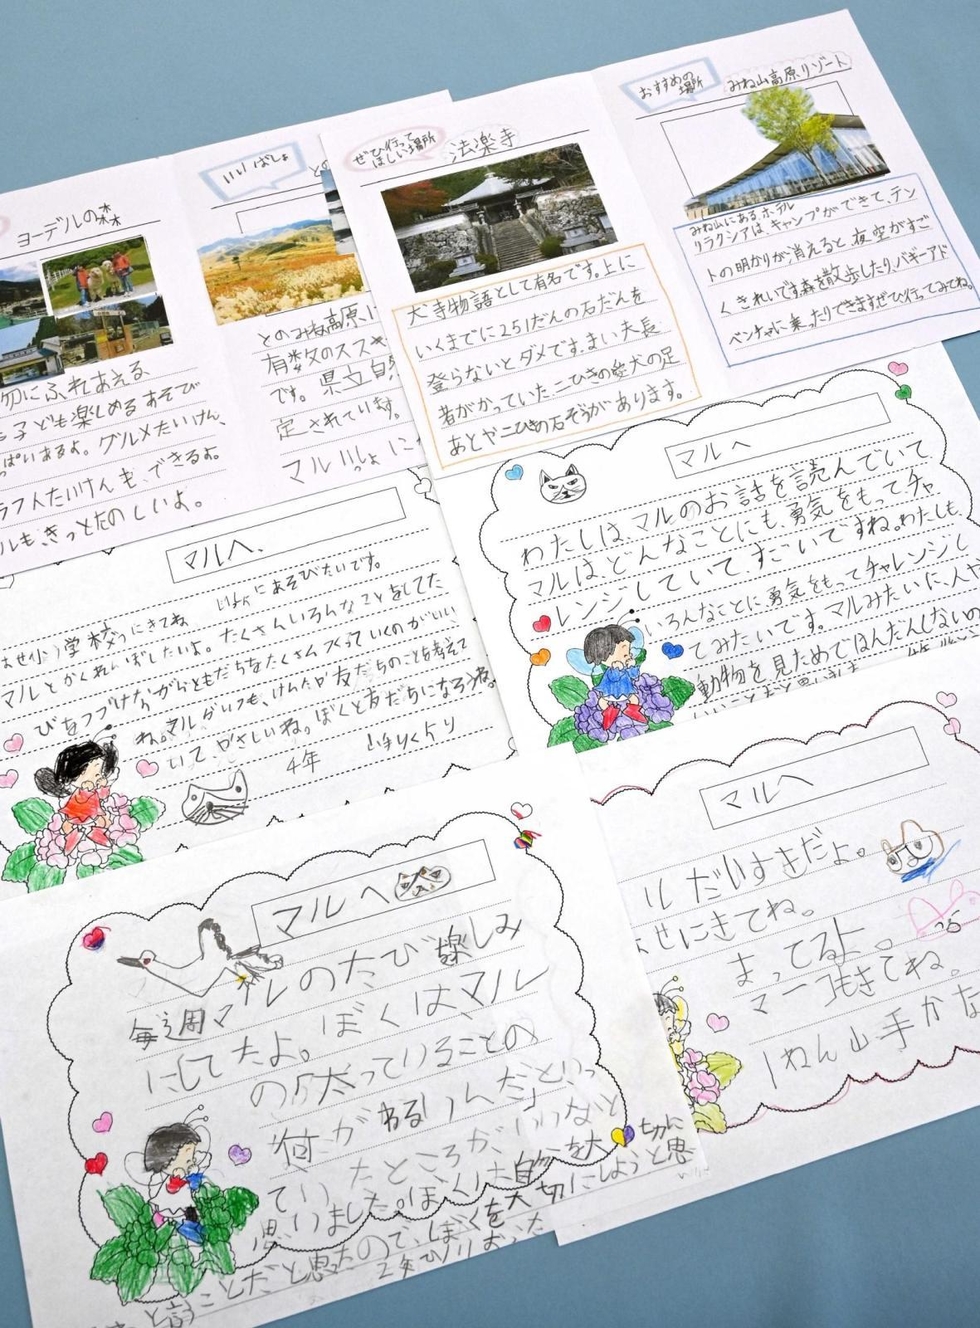 ヨーデルの森
にふれあえる
子ども楽しめるあそび
ぱいあるよ。グルメたいけん、
ラフ人たいけんも、できるよ。
ルも、きっとたのしいよ。
いいばしょ
との
とのみね高原
有数のスス
です。県立自然
定されています。
マル
ぜひ行って
ほしい場所
法楽寺
犬寺物語として有名です。上に
いくまでに251だんの石だんを
登らないとダメです。まい夫長
者がかっていた二ひきの愛犬の足
あとや二ひきの石ぞうがあります。
おすすめの
場所
みね山高原リゾート
みね山にある、ホテル
リラクシアは、キャンプができて、テン
トの明かりが消えると、夜空がすご
くきれいです。森を散歩したり、バギーアド
ベンチャに乗ったりできますぜひ行ってみてね。
マルへ、
はせ小学校にきてね
いっしょにあそびたいです。
マルとかくれんぼしたいよ。たくさんいろんなことをしてた
びをつづけながらともだちをたくさんつくっていくのがいい
ね。マルがいつも、けんたや友だちのことを考えて
いてやさしいね。ぼくと友だちになろうね。
4年
マルへ
わたしは、マルのお話を読んでいて
マルは、どんなことにも、勇気をもってチャ
レンジしていてすごいですね。わたしも
いろんなことに、勇気をもってチャレンジし
てみたいです。マルみたいに、人や
動物を見ためではんだんしないの
マルへ
ルだいすきだよ。
せにきてね。
まってるよ。
マーつもきてね。
1ねん山手かな
マルへ
毎週マルのたび楽しみ
にしてたよ。ぼくは、マル
の
何が
ていたところがいいなと
思いました。ぼくは自分を大切に
思ったので、ぼくを大切にしようと思
と言うことだと
2年